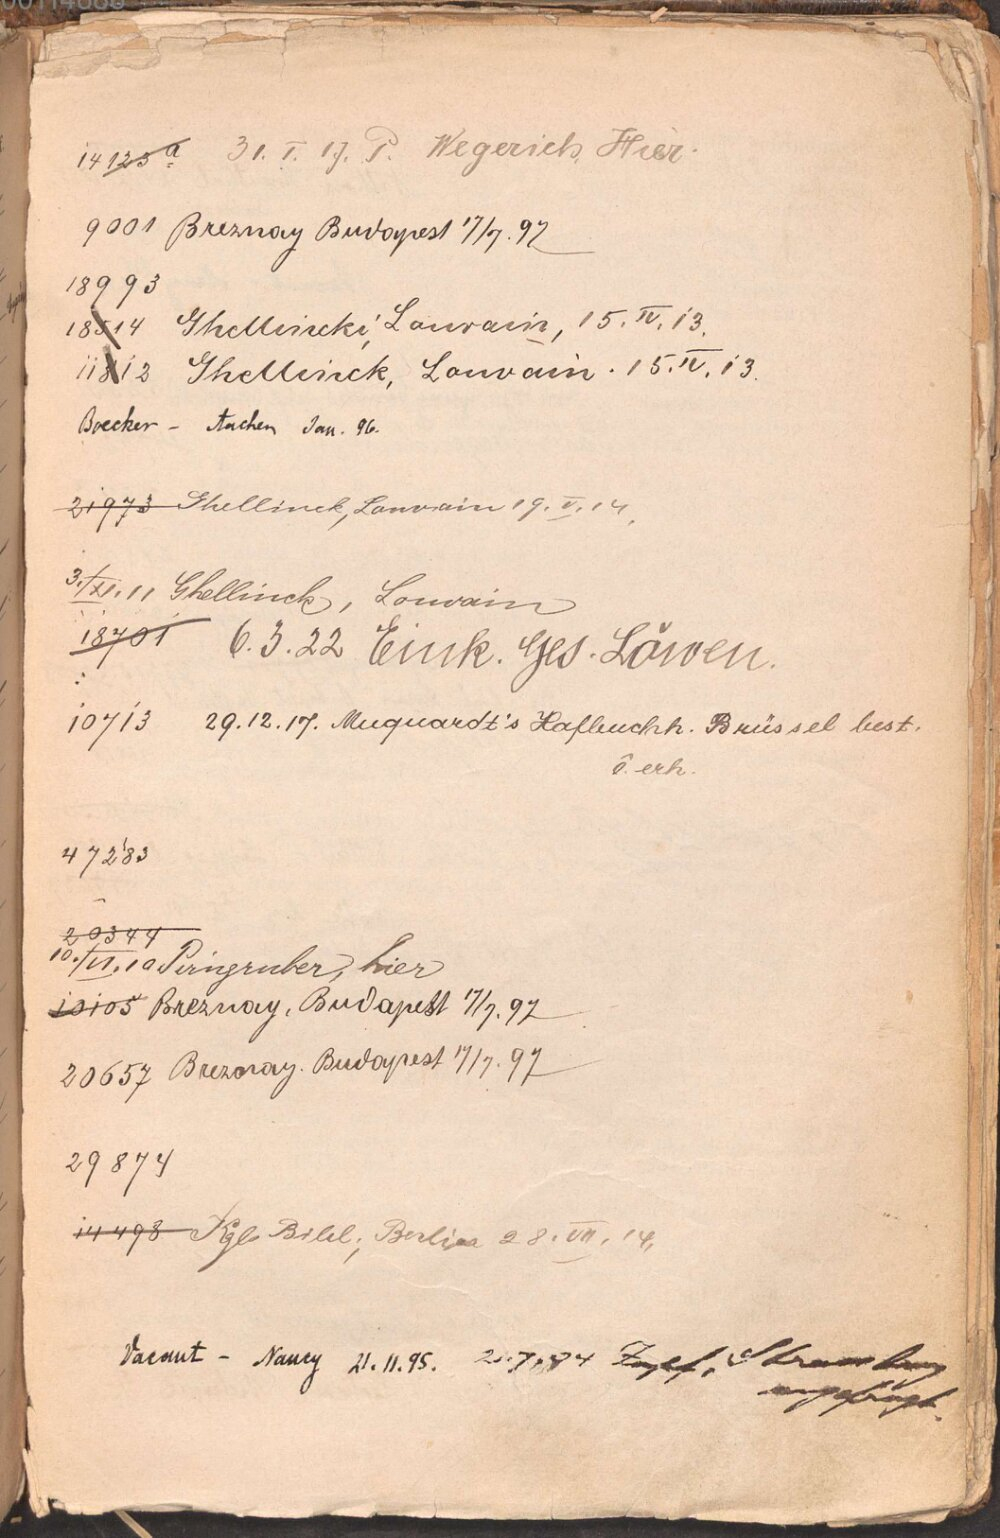 00114886
14123 a 31. I. 17. P. Wegerich, Hier.
9001 Breznay Budapest 17/7. 97
18993
18514 Ghellinck, Louvain, 15. IV. 13.
11812 Ghellinck, Louvain. 15. IV. 13.
Boecker - Aachen Jan. 96.
21973 Ghellinck, Louvain 19. V. 14.
3./XI. 11 Ghellinck, Louvain
18701 6.3.22 Eink. Ges. Löwen.
10713 29.12.17. Muquardt's Hofbuchh. Brüssel best.
erh.
47283
20344
10./VI. 10 Piringruber, hier
10105 Breznay, Budapest 17/7. 97
20657 Breznay. Budapest 17/7. 97
29874
14498 Kgl. Bibl., Berlin 28. VII. 14.
Vacant - Nancy 21. 11. 95.